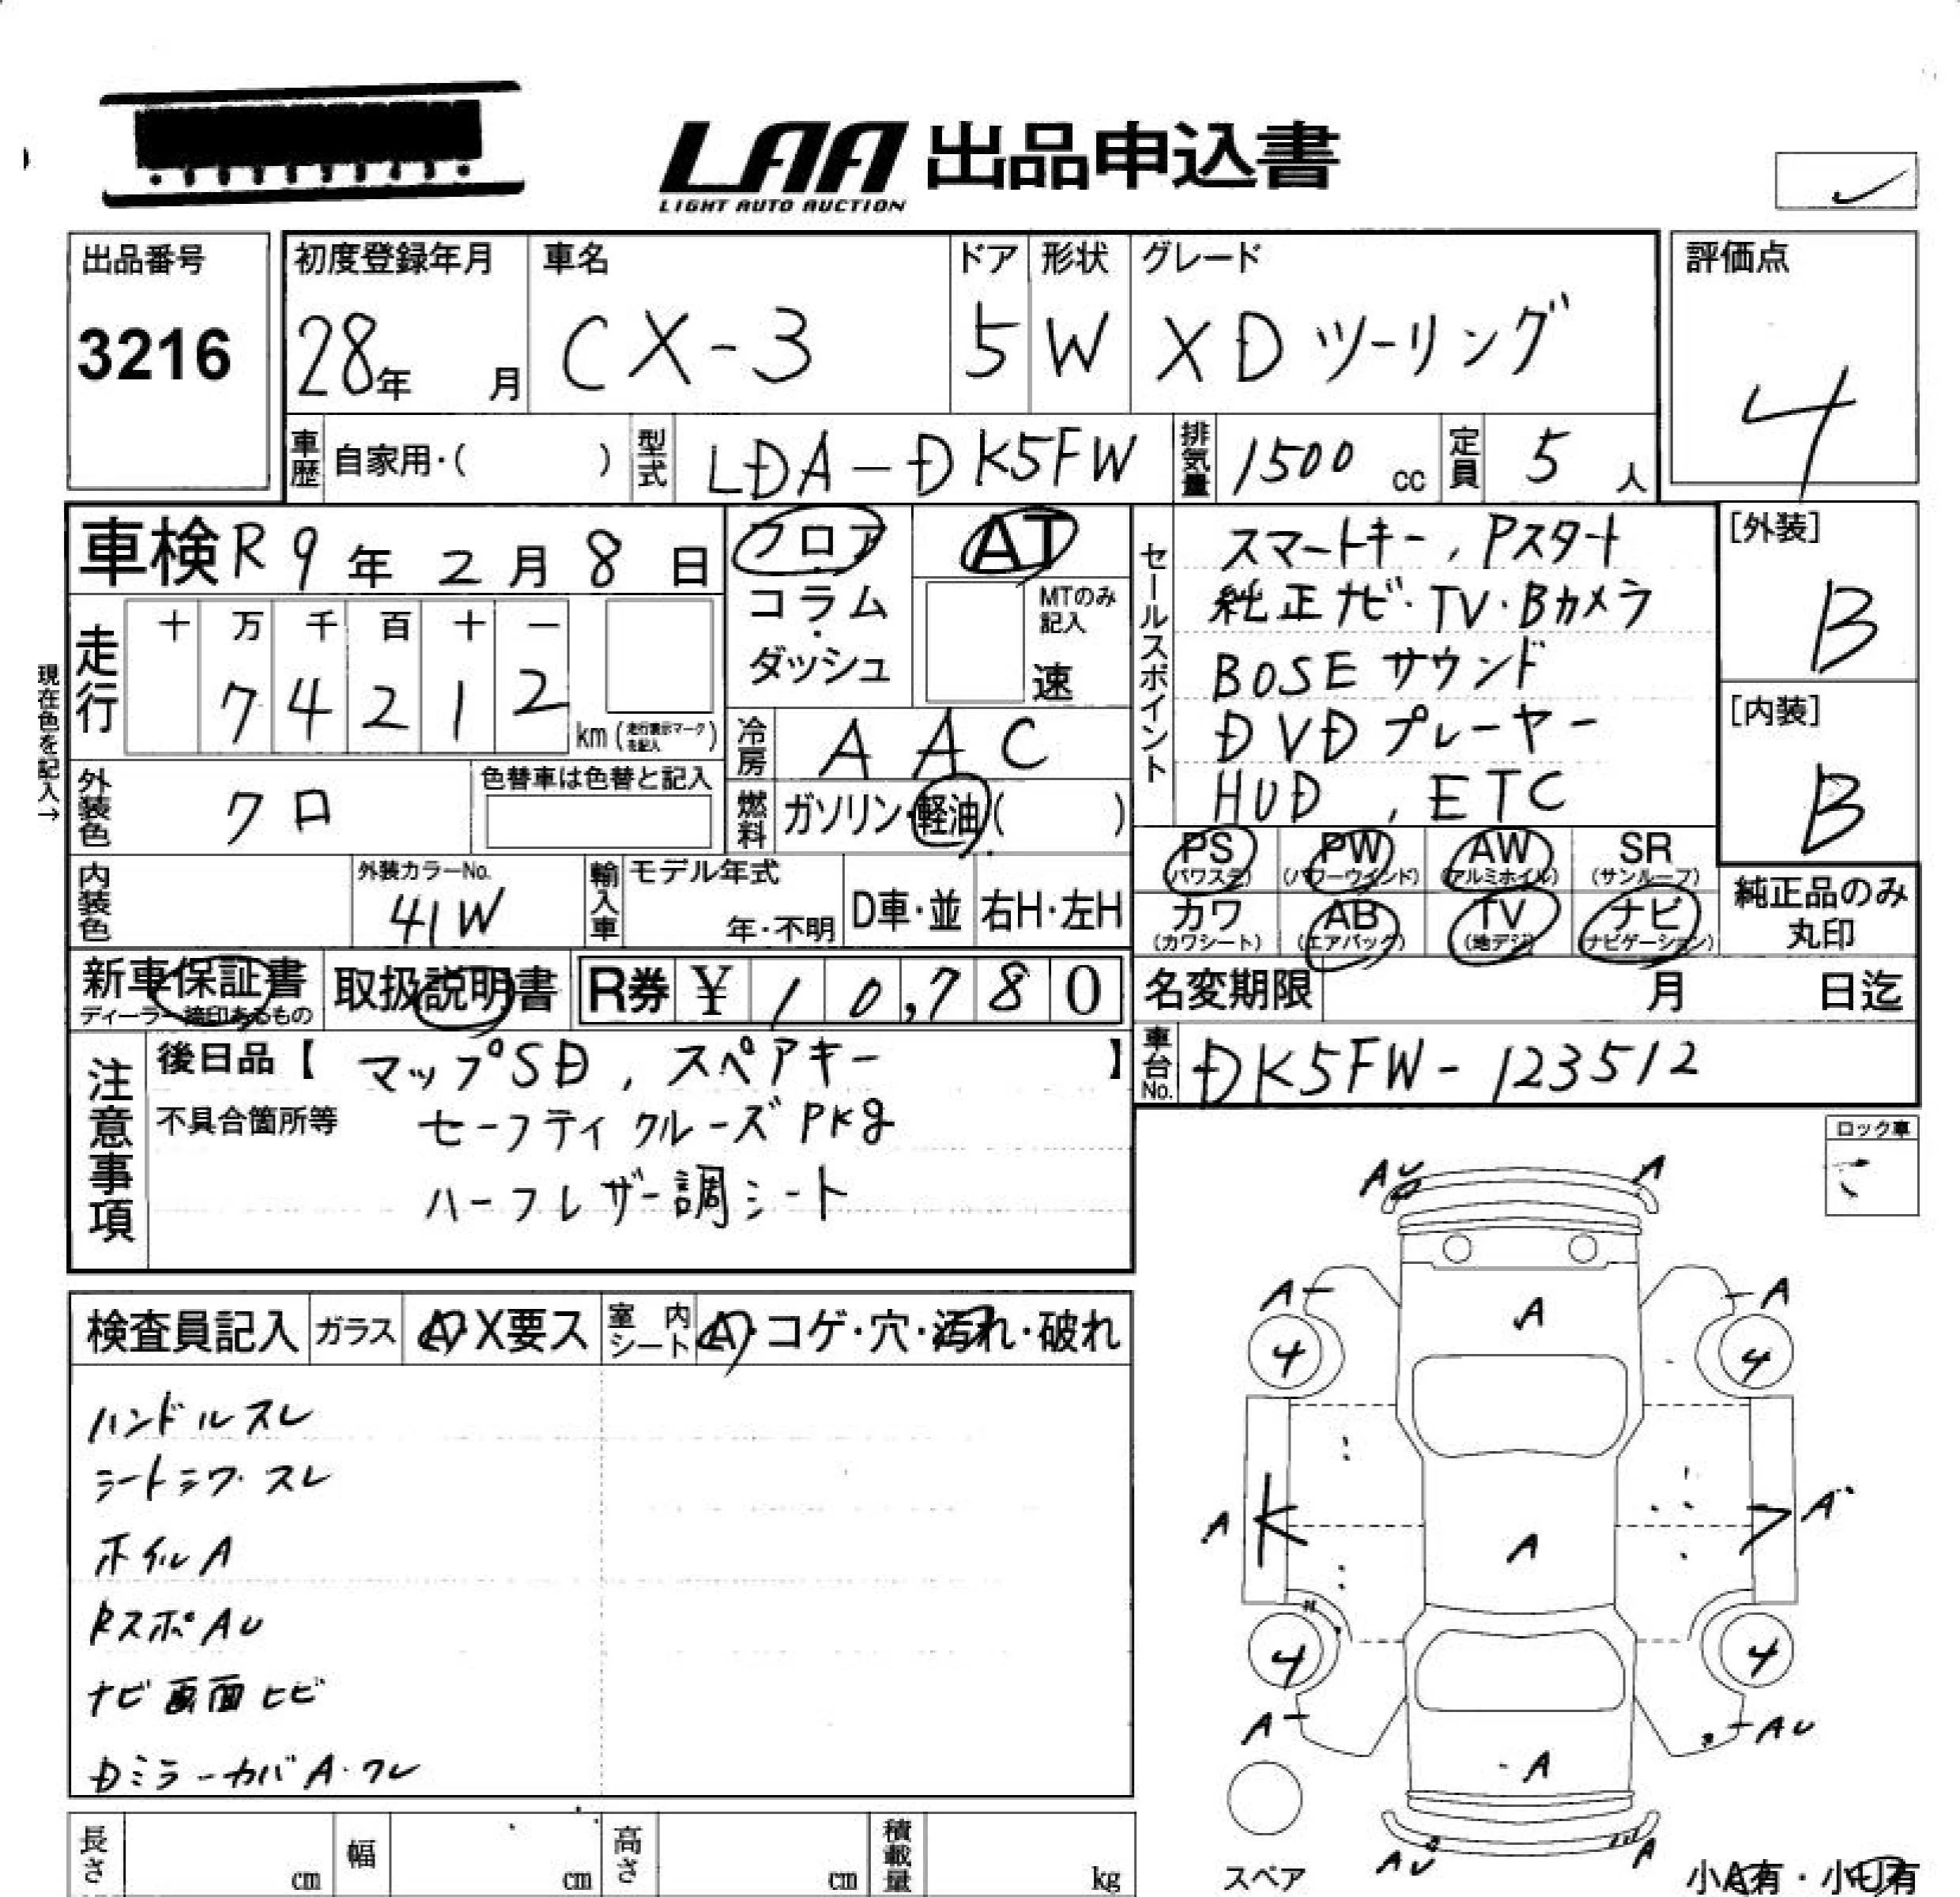 LAA 出品申込書
LIGHT AUTO AUCTION
出品番号
3216
初度登録年月
28年 月
車名
CX-3
ドア
5
形状
W
グレード
XDツーリング
評価点
4
車歴 自家用・( )
型式 LDA-DK5FW
排気量 1500 cc
定員 5 人
車検 R9年 2月 8日
フロア
コラム
・
ダッシュ
AT
MTのみ
記入
速
走行
十 万 千 百 十 一
7 4 2 1 2
km(走行表示マークを記入)
現在色を記入→
冷房 AAC
燃料 ガソリン・軽油( )
外装色 クロ
色替車は色替と記入
内装色
外装カラーNo.
41W
輸入車
モデル年式
年・不明
D車・並
右H・左H
セールスポイント
スマートキー, Pスタート
純正ナビ・TV・Bカメラ
BOSEサウンド
DVDプレーヤー
HUD , ETC
[外装]
B
[内装]
B
PS
(パワステ)
PW
(パワーウインド)
AW
(アルミホイル)
SR
(サンルーフ)
カワ
(カワシート)
AB
(エアバック)
TV
(地デジ)
ナビ
(ナビゲーション)
純正品のみ
丸印
新車保証書
ディーラー捺印あるもの
取扱説明書
R券 ¥ 10,780
名変期限 月 日迄
車台No. DK5FW-123512
注意事項
後日品【 マップSD, スペアキー 】
不具合箇所等
セーフティクルーズPKg
ハーフレザー調シート
ロック車
検査員記入
ガラス A・X要ス
室内シート A・コゲ・穴・汚れ・破れ
ハンドルスレ
シートシワ・スレ
ホイルA
RスポAU
ナビ画面ヒビ
DミラーカバA・ワレ
AU A
A A
A
4 4
A A
A
4 4
A AU
A
AU A
スペア
小A有・小U有
長さ cm
幅 cm
高さ cm
積載量 kg